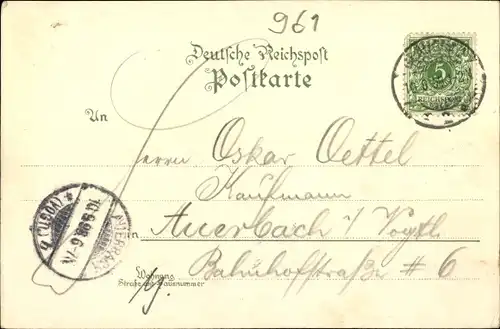 961
Deutsche Reichspost
Postkarte
5
An
Herrn Oskar Oettel
Kaufmann
in Auerbach i/Vogtl.
Bahnhofstraße # 6
Wohnung
Straße und Hausnummer
AUERBACH
10.9.98.6-7N.
(VOGTL)